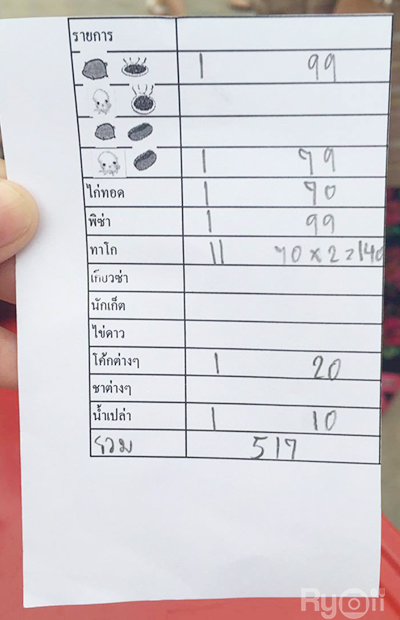 รายการ
1 99
1 79
ไก่ทอด 1 70
พิซ่า 1 99
ทาโก 11 70 x 2 = 140
เกี๊ยวซ่า
นักเก็ต
ไข่ดาว
โค้กต่างๆ 1 20
ชาต่างๆ
น้ำเปล่า 1 10
รวม 517
Ryoii